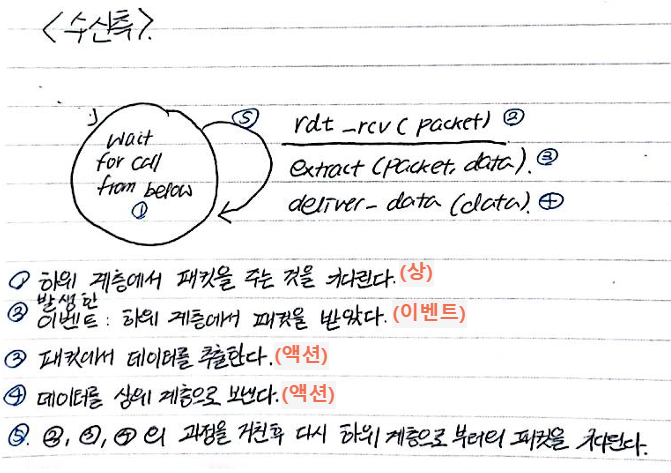 <수신측>.
wait
for call
from below
①
⑤
rdt_rcv( packet) ②
extract (packet, data). ③
deliver_data (data). ④
① 하위 계층에서 패킷을 주는 것을 기다린다.(상)
발생한
② 이벤트 : 하위 계층에서 패킷을 받았다. (이벤트)
③ 패킷에서 데이터를 추출한다.(액션)
④ 데이터를 상위 계층으로 보낸다.(액션)
⑤. ②, ③, ④ 의 과정을 거친후 다시 하위 계층으로 부터의 패킷을 기다린다.